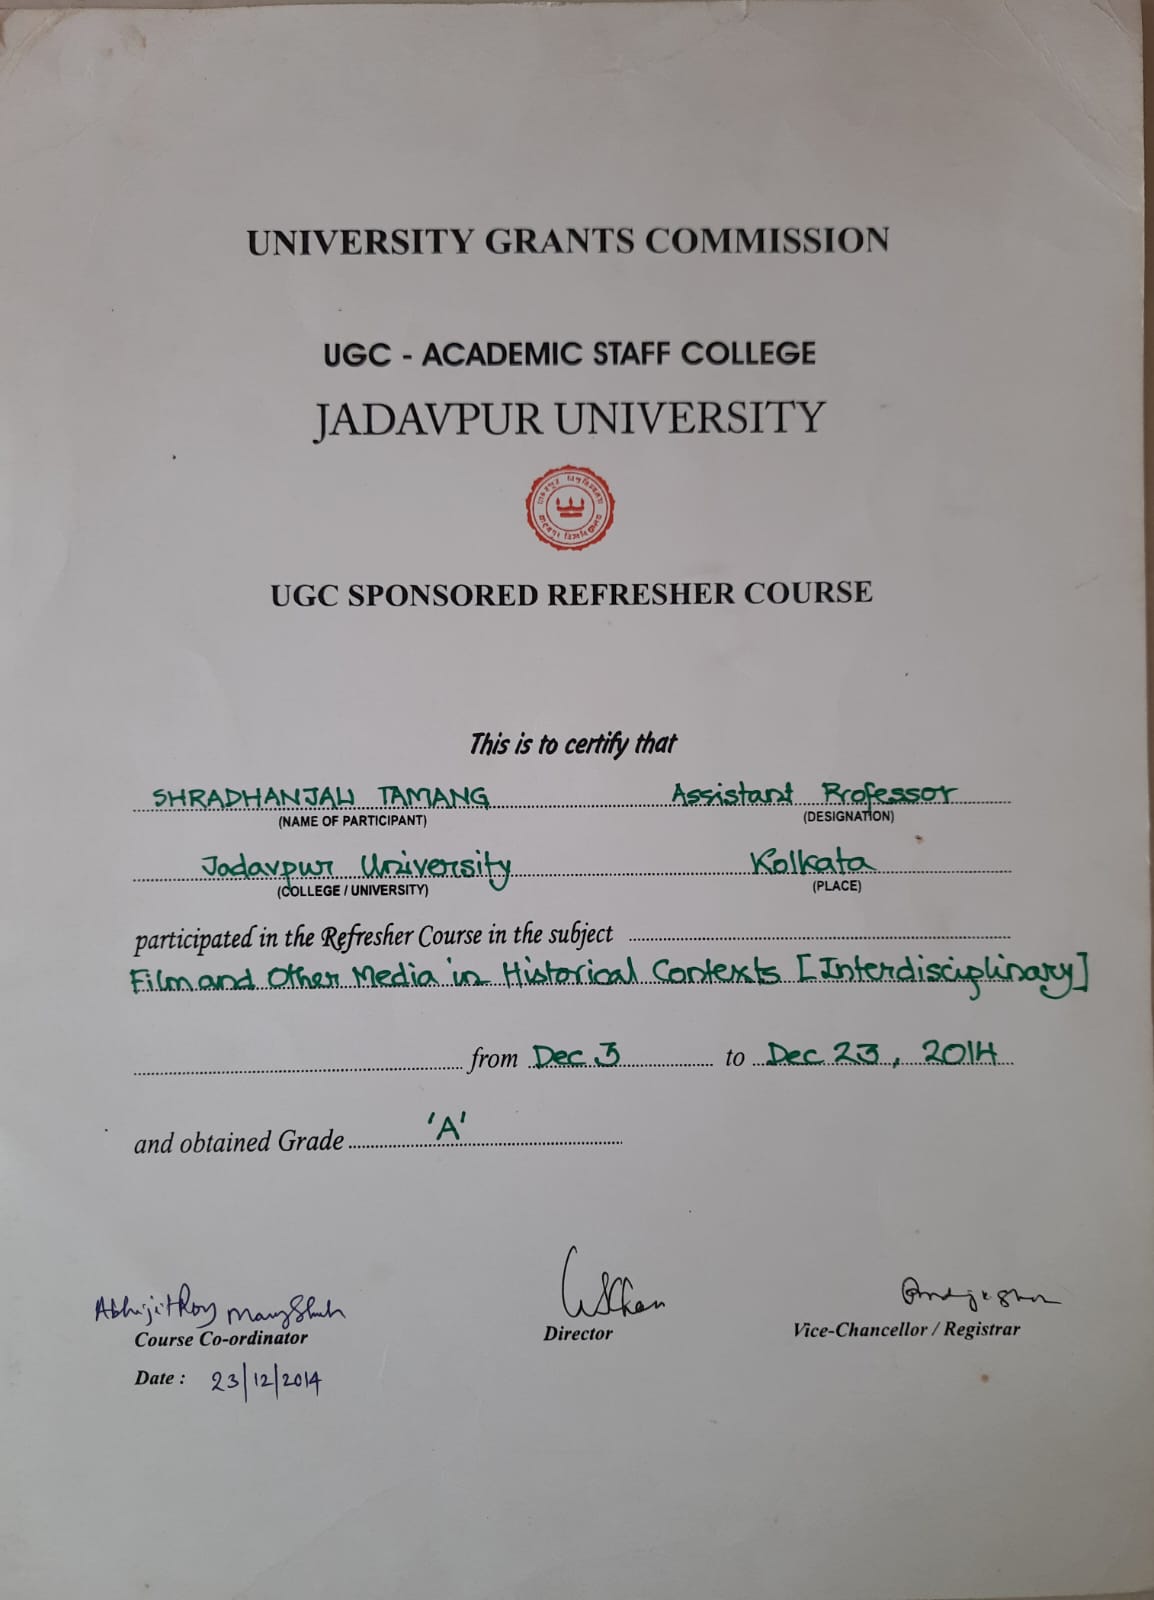 UNIVERSITY GRANTS COMMISSION
UGC - ACADEMIC STAFF COLLEGE
JADAVPUR UNIVERSITY
UGC SPONSORED REFRESHER COURSE
This is to certify that
SHRADHANJALI TAMANG Assistant Professor
(NAME OF PARTICIPANT) (DESIGNATION)
Jadavpur University Kolkata
(COLLEGE / UNIVERSITY) (PLACE)
participated in the Refresher Course in the subject
Film and Other Media in Historical Contexts [Interdisciplinary]
from Dec 3 to Dec 23, 2014
and obtained Grade 'A'
Abhijit Roy
Course Co-ordinator Director Vice-Chancellor / Registrar
Date : 23/12/2014